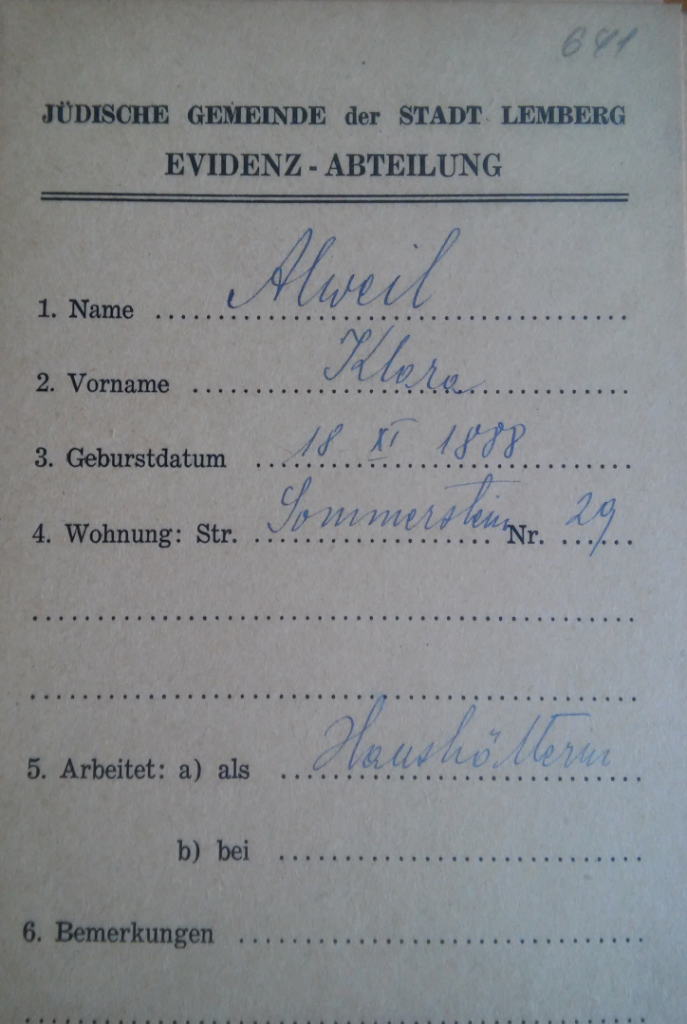 641
JÜDISCHE GEMEINDE der STADT LEMBERG
EVIDENZ - ABTEILUNG
1. Name Alweil
2. Vorname Klara
3. Geburstdatum 18 XI 1888
4. Wohnung: Str. Sommerstein Nr. 29
5. Arbeitet: a) als Haushöltterin
b) bei
6. Bemerkungen